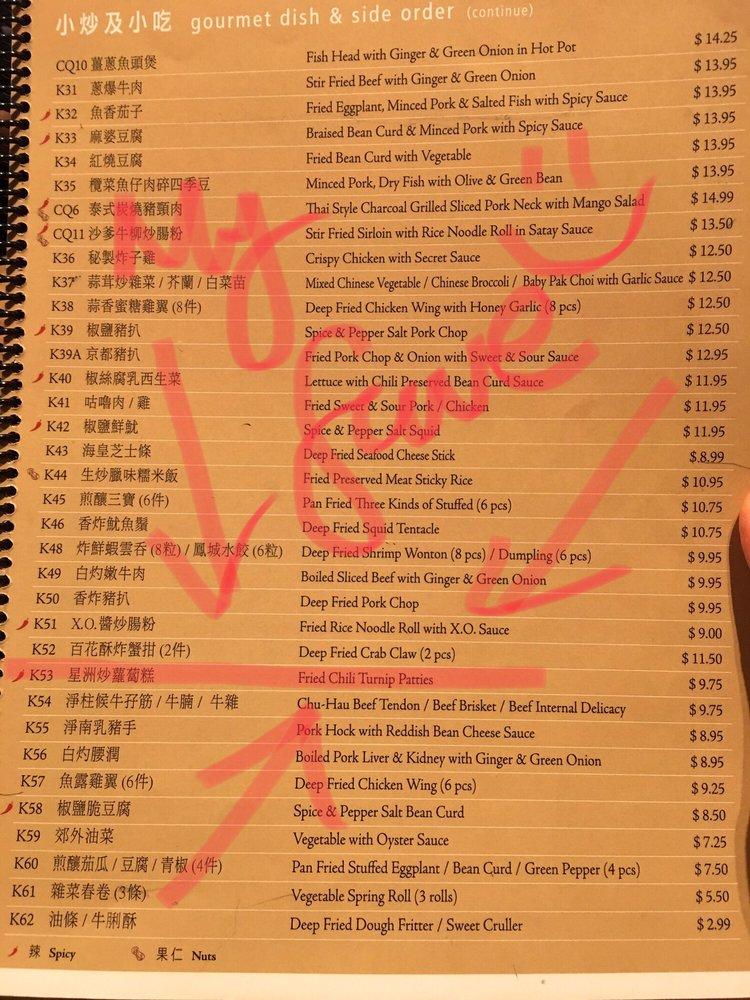 小炒及小吃 gourmet dish & side order (continue)
CQ10 薑蔥魚頭煲 Fish Head with Ginger & Green Onion in Hot Pot $14.25
K31 蔥爆牛肉 Stir Fried Beef with Ginger & Green Onion $13.95
K32 魚香茄子 Fried Eggplant, Minced Pork & Salted Fish with Spicy Sauce $13.95
K33 麻婆豆腐 Braised Bean Curd & Minced Pork with Spicy Sauce $13.95
K34 紅燒豆腐 Fried Bean Curd with Vegetable $13.95
K35 欖菜魚仔肉碎四季豆 Minced Pork, Dry Fish with Olive & Green Bean $13.95
CQ6 泰式炭燒豬頸肉 Thai Style Charcoal Grilled Sliced Pork Neck with Mango Salad $14.99
CQ11 沙爹牛柳炒腸粉 Stir Fried Sirloin with Rice Noodle Roll in Satay Sauce $13.50
K36 秘製炸子雞 Crispy Chicken with Secret Sauce $12.50
K37 蒜茸炒雜菜 / 芥蘭 / 白菜苗 Mixed Chinese Vegetable / Chinese Broccoli / Baby Pak Choi with Garlic Sauce $12.50
K38 蒜香蜜糖雞翼 (8件) Deep Fried Chicken Wing with Honey Garlic (8 pcs) $12.50
K39 椒鹽豬扒 Spice & Pepper Salt Pork Chop $12.50
K39A 京都豬扒 Fried Pork Chop & Onion with Sweet & Sour Sauce $12.95
K40 椒絲腐乳西生菜 Lettuce with Chili Preserved Bean Curd Sauce $11.95
K41 咕嚕肉 / 雞 Fried Sweet & Sour Pork / Chicken $11.95
K42 椒鹽鮮魷 Spice & Pepper Salt Squid $11.95
K43 海皇芝士條 Deep Fried Seafood Cheese Stick $.8.99
K44 生炒臘味糯米飯 Fried Preserved Meat Sticky Rice $10.95
K45 煎釀三寶 (6件) Pan Fried Three Kinds of Stuffed (6 pcs) $10.75
K46 香炸魷魚鬚 Deep Fried Squid Tentacle $10.75
K48 炸鮮蝦雲吞 (8粒) / 鳳城水餃 (6粒) Deep Fried Shrimp Wonton (8 pcs) / Dumpling (6 pcs) $9.95
K49 白灼嫩牛肉 Boiled Sliced Beef with Ginger & Green Onion $9.95
K50 香炸豬扒 Deep Fried Pork Chop $9.95
K51 X.O.醬炒腸粉 Fried Rice Noodle Roll with X.O. Sauce $9.00
K52 百花酥炸蟹拑 (2件) Deep Fried Crab Claw (2 pcs) $11.50
K53 星洲炒蘿蔔糕 Fried Chili Turnip Patties $9.75
K54 淨柱候牛孖筋 / 牛腩 / 牛雜 Chu-Hau Beef Tendon / Beef Brisket / Beef Internal Delicacy $9.75
K55 淨南乳豬手 Pork Hock with Reddish Bean Cheese Sauce $8.95
K56 白灼腰潤 Boiled Pork Liver & Kidney with Ginger & Green Onion $8.95
K57 魚露雞翼 (6件) Deep Fried Chicken Wing (6 pcs) $9.25
K58 椒鹽脆豆腐 Spice & Pepper Salt Bean Curd $8.50
K59 郊外油菜 Vegetable with Oyster Sauce $7.25
K60 煎釀茄瓜 / 豆腐 / 青椒 (4件) Pan Fried Stuffed Eggplant / Bean Curd / Green Pepper (4 pcs) $7.50
K61 雜菜春卷 (3條) Vegetable Spring Roll (3 rolls) $5.50
K62 油條 / 牛脷酥 Deep Fried Dough Fritter / Sweet Cruller $2.99
辣 Spicy 果仁 Nuts
My
Fave